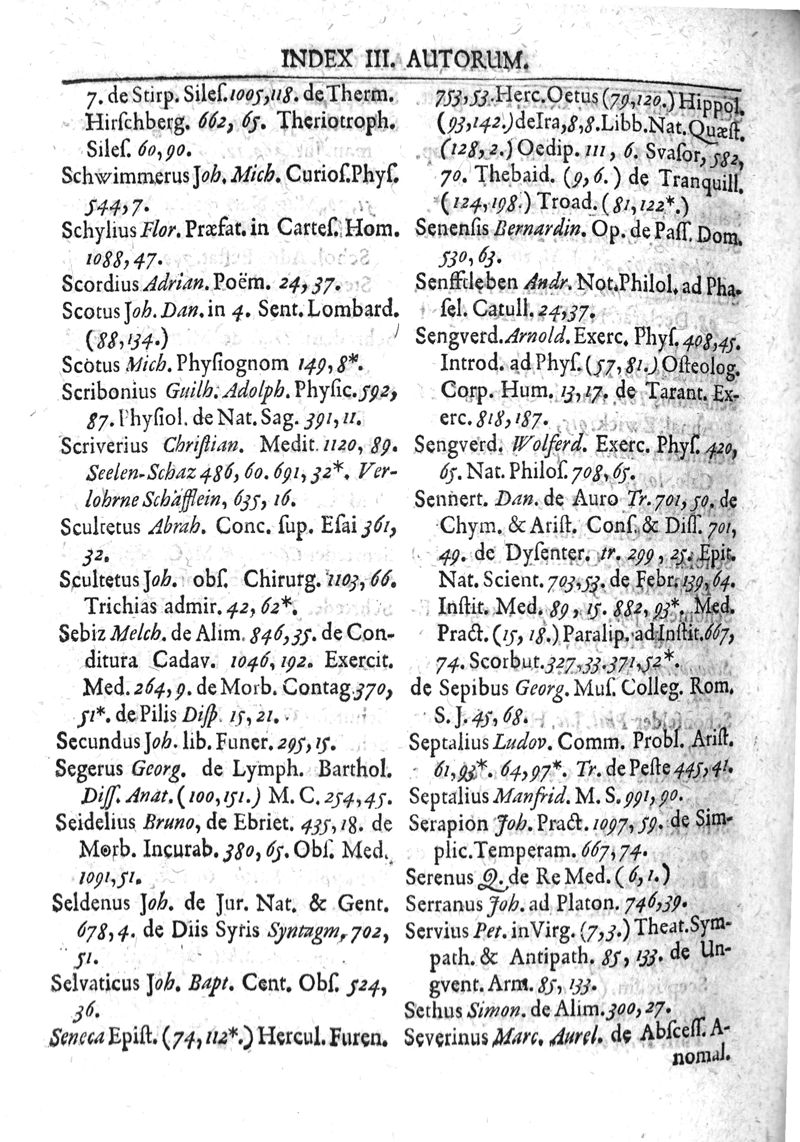 INDEX III. AUTORUM.
7. de Stirp. Sileſ. 1005, 118. de Therm.
Hirſchberg. 662, 65. Theriotroph.
Sileſ. 60, 90.
Schwimmerus Joh. Mich. Curioſ. Phyſ.
544, 7.
Schylius Flor. Præfat. in Carteſ. Hom.
1088, 47.
Scordius Adrian. Poëm. 24, 37.
Scotus Joh. Dan. in 4. Sent. Lombard.
(88, 134.)
Scotus Mich. Phyſiognom 149, 8*.
Scribonius Guilh. Adolph. Phyſic. 592,
87. Phyſiol. de Nat. Sag. 391, 11.
Scriverius Chriſtian. Medit. 1120, 89.
Seelen-Schaz 486, 60. 691, 32*. Ver-
lohrne Schäfflein, 635, 16.
Scultetus Abrah. Conc. ſup. Eſai 361,
32.
Scultetus Joh. obſ. Chirurg. 1103, 66.
Trichias admir. 42, 62*.
Sebiz Melch. de Alim. 846, 35. de Con-
ditura Cadav. 1046, 192. Exercit.
Med. 264, 9. de Morb. Contag. 370,
51*. de Pilis Diſp. 15, 21.
Secundus Joh. lib. Funer. 295, 15.
Segerus Georg. de Lymph. Barthol.
Diſſ. Anat. (100, 151.) M. C. 254, 45.
Seidelius Bruno, de Ebriet. 435, 18. de
Morb. Incurab. 380, 65. Obſ. Med.
1091, 51.
Seldenus Joh. de Jur. Nat. & Gent.
678, 4. de Diis Syris Syntagm, 702,
51.
Selvaticus Joh. Bapt. Cent. Obſ. 524,
36.
Seneca Epiſt. (74, 112*.) Hercul. Furen.
753, 53. Herc. Oetus (79, 120.) Hippol.
(93, 142.) de Ira, 8, 8. Libb. Nat. Quæſt.
(128, 2.) Oedip. 111, 6. Svaſor, 582,
70. Thebaid. (9, 6.) de Tranquill.
(124, 198.) Troad. (81, 122*.)
Senenſis Bernardin. Op. de Paſſ. Dom.
530, 63.
Senfftleben Andr. Not. Philol. ad Pha-
ſel. Catull. 24, 37.
Sengverd. Arnold. Exerc. Phyſ. 408, 45.
Introd. ad Phyſ. (57, 81.) Oſteolog.
Corp. Hum. 13, 17. de Tarant. Ex-
erc. 818, 187.
Sengverd. Wolferd. Exerc. Phyſ. 420,
65. Nat. Philoſ. 708, 65.
Sennert. Dan. de Auro Tr. 701, 50. de
Chym. & Ariſt. Conſ. & Diſſ. 701,
49. de Dyſenter. tr. 299, 25. Epit.
Nat. Scient. 703, 53. de Febr. 139, 64.
Inſtit. Med. 89, 15. 882, 93*. Med.
Pract. (15, 18.) Paralip. ad Inſtit. 667,
74. Scorbut. 327, 33. 371, 52*.
de Sepibus Georg. Muſ. Colleg. Rom.
S. J. 45, 68.
Septalius Ludov. Comm. Probl. Ariſt.
61, 93*. 64, 97*. Tr. de Peſte 445, 41.
Septalius Manfrid. M. S. 991, 90.
Serapion Joh. Pract. 1097, 59. de Sim-
plic. Temperam. 667, 74.
Serenus Q. de Re Med. (6, 1.)
Serranus Joh. ad Platon. 746, 39.
Servius Pet. in Virg. (7, 3.) Theat. Sym-
path. & Antipath. 85, 133. de Un-
gvent. Arm. 85, 133.
Sethus Simon. de Alim. 300, 27.
Severinus Marc. Aurel. de Abſceſſ. A-
nomal.